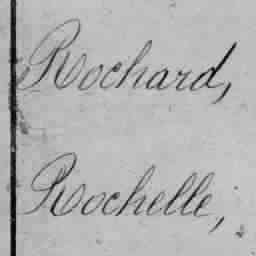 Rochard,
Rochelle,